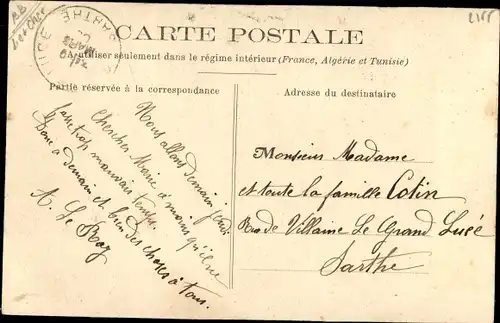 BB
Loir Cher
2155
SARTHE
LUCÉ
MARS
CARTE POSTALE
A utiliser seulement dans le régime intérieur (France, Algérie et Tunisie)
Partie réservée à la correspondance
Nous allons demain jeudi
chercher Marie à moins qu'il ne
fasse trop mauvais temps.
Donc à demain et bien des choses à tous.
A. Le Roy
Adresse du destinataire
Monsieur Madame
et toute la famille Cotin
Rue de Villaine Le Grand Lucé
Sarthe